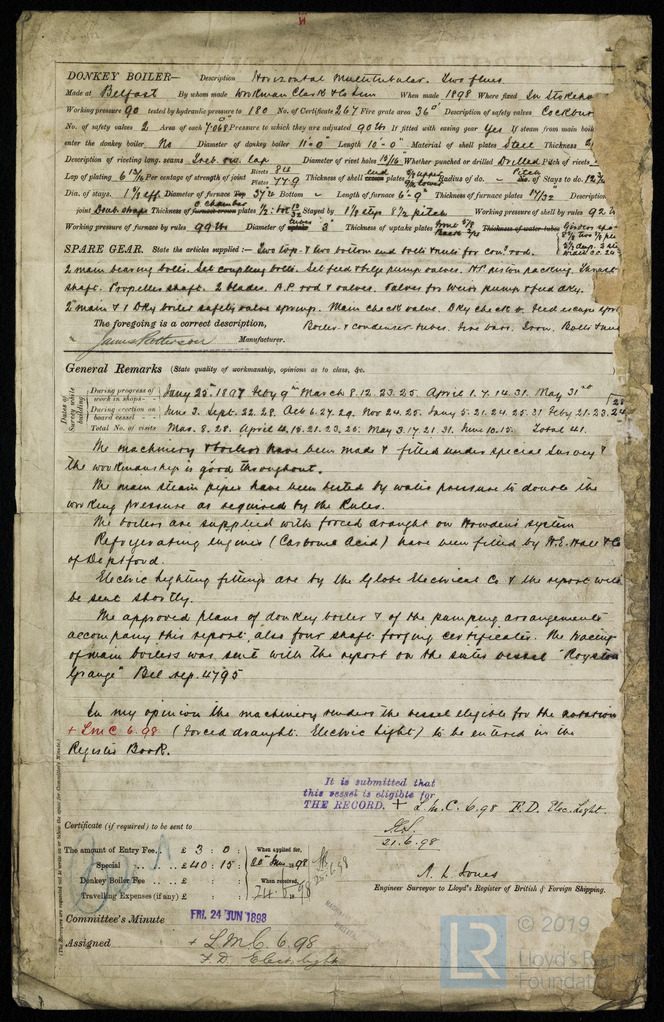 DONKEY BOILER— Description Horizontal Multitubular. Two flues
Made at Belfast By whom made Workman Clark & Co Lim When made 1898 Where fixed In Stokeho
Working pressure 90 tested by hydraulic pressure to 180 No. of Certificate 267 Fire grate area 36 Description of safety valves Cockbur
No. of safety valves 2 Area of each 7.068 Pressure to which they are adjusted 90 lbs If fitted with easing gear Yes If steam from main boil
enter the donkey boiler No Diameter of donkey boiler 11'-0" Length 10'-0" Material of shell plates Steel Thickness
Description of riveting long. seams Treb. riv. lap Diameter of rivet holes 15/16 Whether punched or drilled Drilled Pitch of rivets
Lap of plating Per centage of strength of joint Rivets Plates 77.9 Thickness of shell crown plates Radius of do. No. of Stays to do.
Dia. of stays. 1 5/8 eff. Diameter of furnace Top Bottom Length of furnace 6'-9" Thickness of furnace plates 17/32 Description
joint Thickness of furnace crown plates Stayed by 1 1/2 stays 8 1/2 pitch Working pressure of shell by rules 92
Working pressure of furnace by rules 99 lbs Diameter of uptake tubes 3" Thickness of uptake plates Thickness of water tubes
SPARE GEAR. State the articles supplied:— Two top & two bottom end bolts & nuts for con. rod.
2 main bearing bolts. Set coupling bolts. Set feed & bilge pump valves. H.P. piston packing. Thrust
shaft. Propeller shaft. 2 blades. A.P. rod & valves. Valves for Weirs pump & feed dky.
2 main & 1 Dky boiler safety valve springs. Main check valve. Dky check v. Feed escape spri
The foregoing is a correct description, Boiler & condenser tubes. Fire bars. Iron. Bolts & nuts
James Patterson Manufacturer.
General Remarks (State quality of workmanship, opinions as to class, &c.
Dates of Survey while building
During progress of work in shops - - Jany 25th 1897 Feby 9th March 8.12.23.25. April 1.7.14.31. May 31st
During erection on board vessel - - - June 3. Sept. 22.28. Oct 6.27.29. Nov 24.25. Jany 5.21.24.25.31 Feby 21.23.24
Total No. of visits Mar. 8.28. April 4.15.21.23.25. May 3.17.21.31. June 10.15. Total 41.
The machinery & boilers have been made & fitted under special Survey &
the workmanship is good throughout.
The main steam pipes have been tested by water pressure to double the
working pressure as required by the Rules.
The boilers are supplied with forced draught on Howden's system
Refrigerating engines (Carbonic Acid) have been fitted by H.E. Hall & Co
of Deptford.
Electric Lighting fittings are by the Globe Electrical Co & the report will
be sent shortly.
The approved plans of donkey boiler & of the pumping arrangements
accompany this report, also four shaft forging certificates. The tracing
of main boilers was sent with the report on the sister vessel "Royston
Grange" Bel rep. 4795
In my opinion the machinery renders the vessel eligible for the notation
+ L.M.C. 6.98 (forced draught. Electric Light) to be entered in the
Register Book.
It is submitted that
this vessel is eligible for
THE RECORD. + L.M.C. 6.98 F.D. Elec. Light.
21.6.98
Certificate (if required) to be sent to
The amount of Entry Fee.. £ 3 : 0 : When applied for,
Special .. .. .. £ 40 : 15 : 98
Donkey Boiler Fee .. .. £ : : When received,
Travelling Expenses (if any) £ : :
Engineer Surveyor to Lloyd's Register of British & Foreign Shipping.
Committee's Minute FRI. 24 JUN 1898
Assigned + L.M.C. 6.98
F.D. Elec. light
© 2019
Lloyd's Register
Foundation
LR